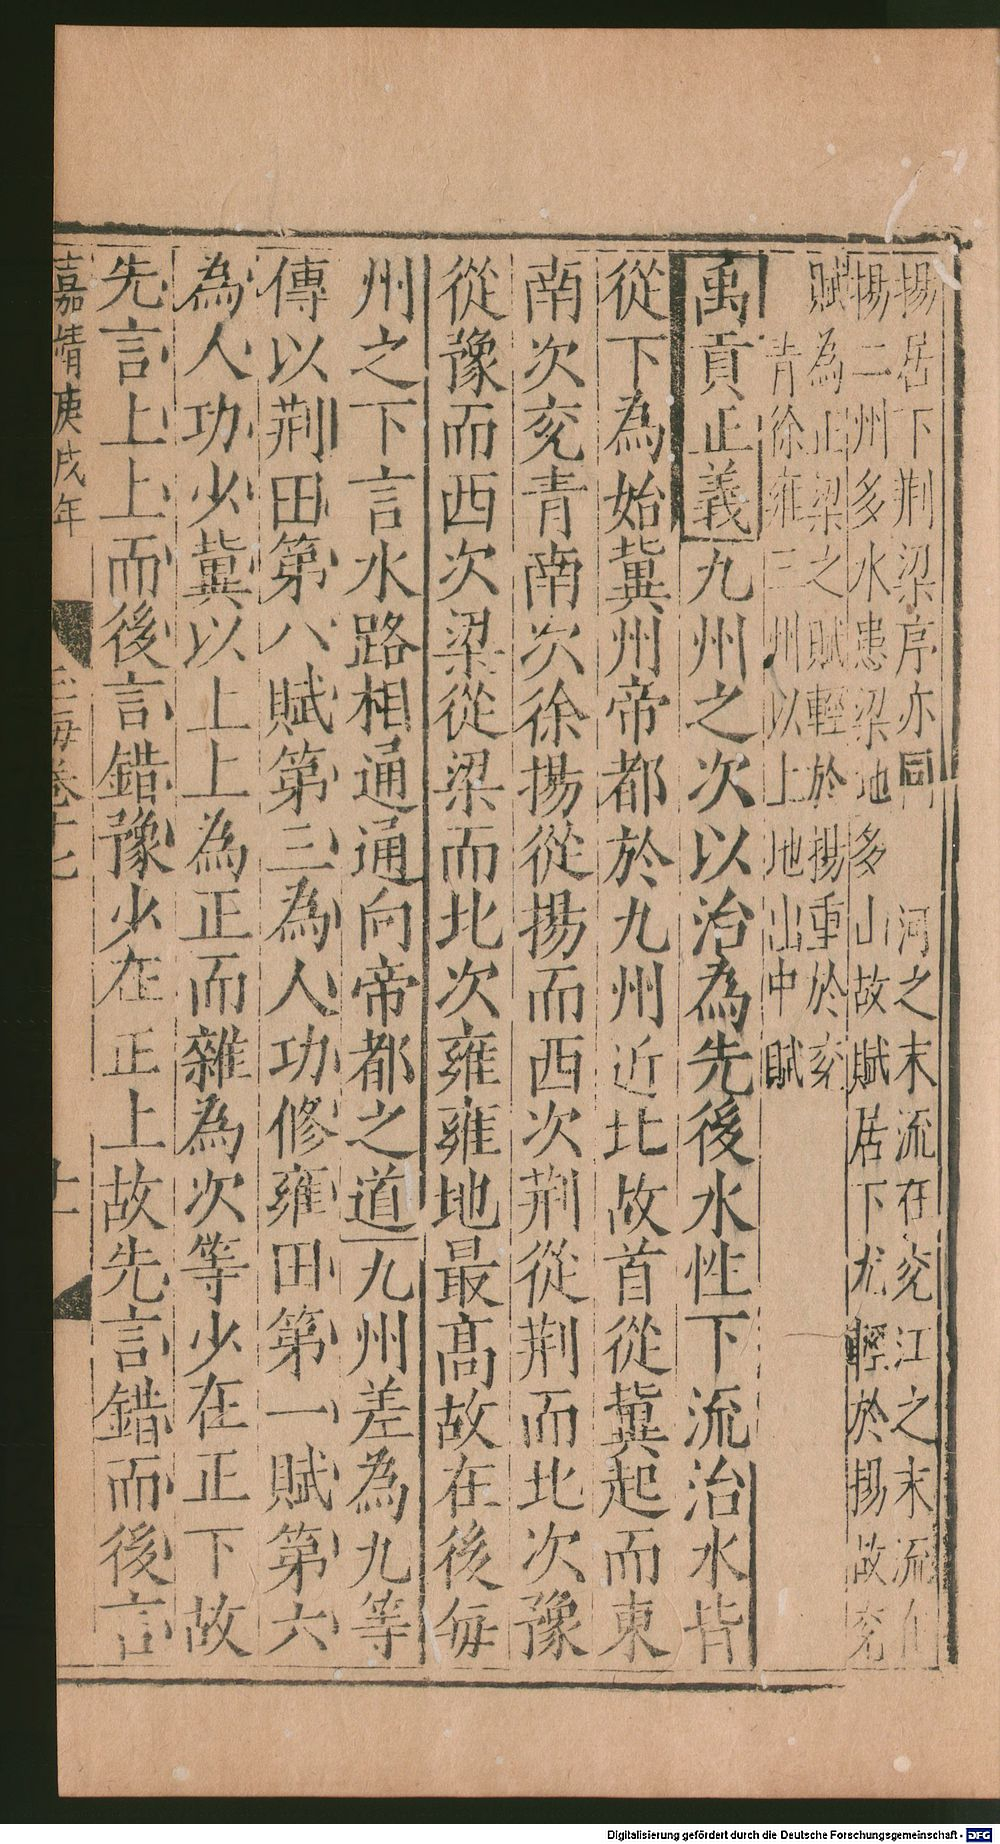 揚居下荆梁序亦同 河之末流在兖江之末流
揚二州多水患梁地多山故賦居下尤輕於揚故兖
賦為正梁之賦輕於揚重於兖
青徐雍三州以上地山中賦
禹貢正義九州之次以治為先後水性下流治水皆
從下為始冀州帝都於九州近北故首從冀起而東
南次兖青南次徐揚從揚而西次荆從荆而北次豫
從豫而西次梁從梁而北次雍雍地最高故在後每
州之下言水路相通通向帝都之道九州差為九等
傳以荆田第八賦第三為人功修雍田第一賦第六
為人功少冀以上上為正而雜為次等少在正下故
先言上上而後言錯豫少在正上故先言錯而後言
嘉靖庚戌年 玉海卷十七 十一
Digitalisierung gefördert durch die Deutsche Forschungsgemeinschaft - DFG